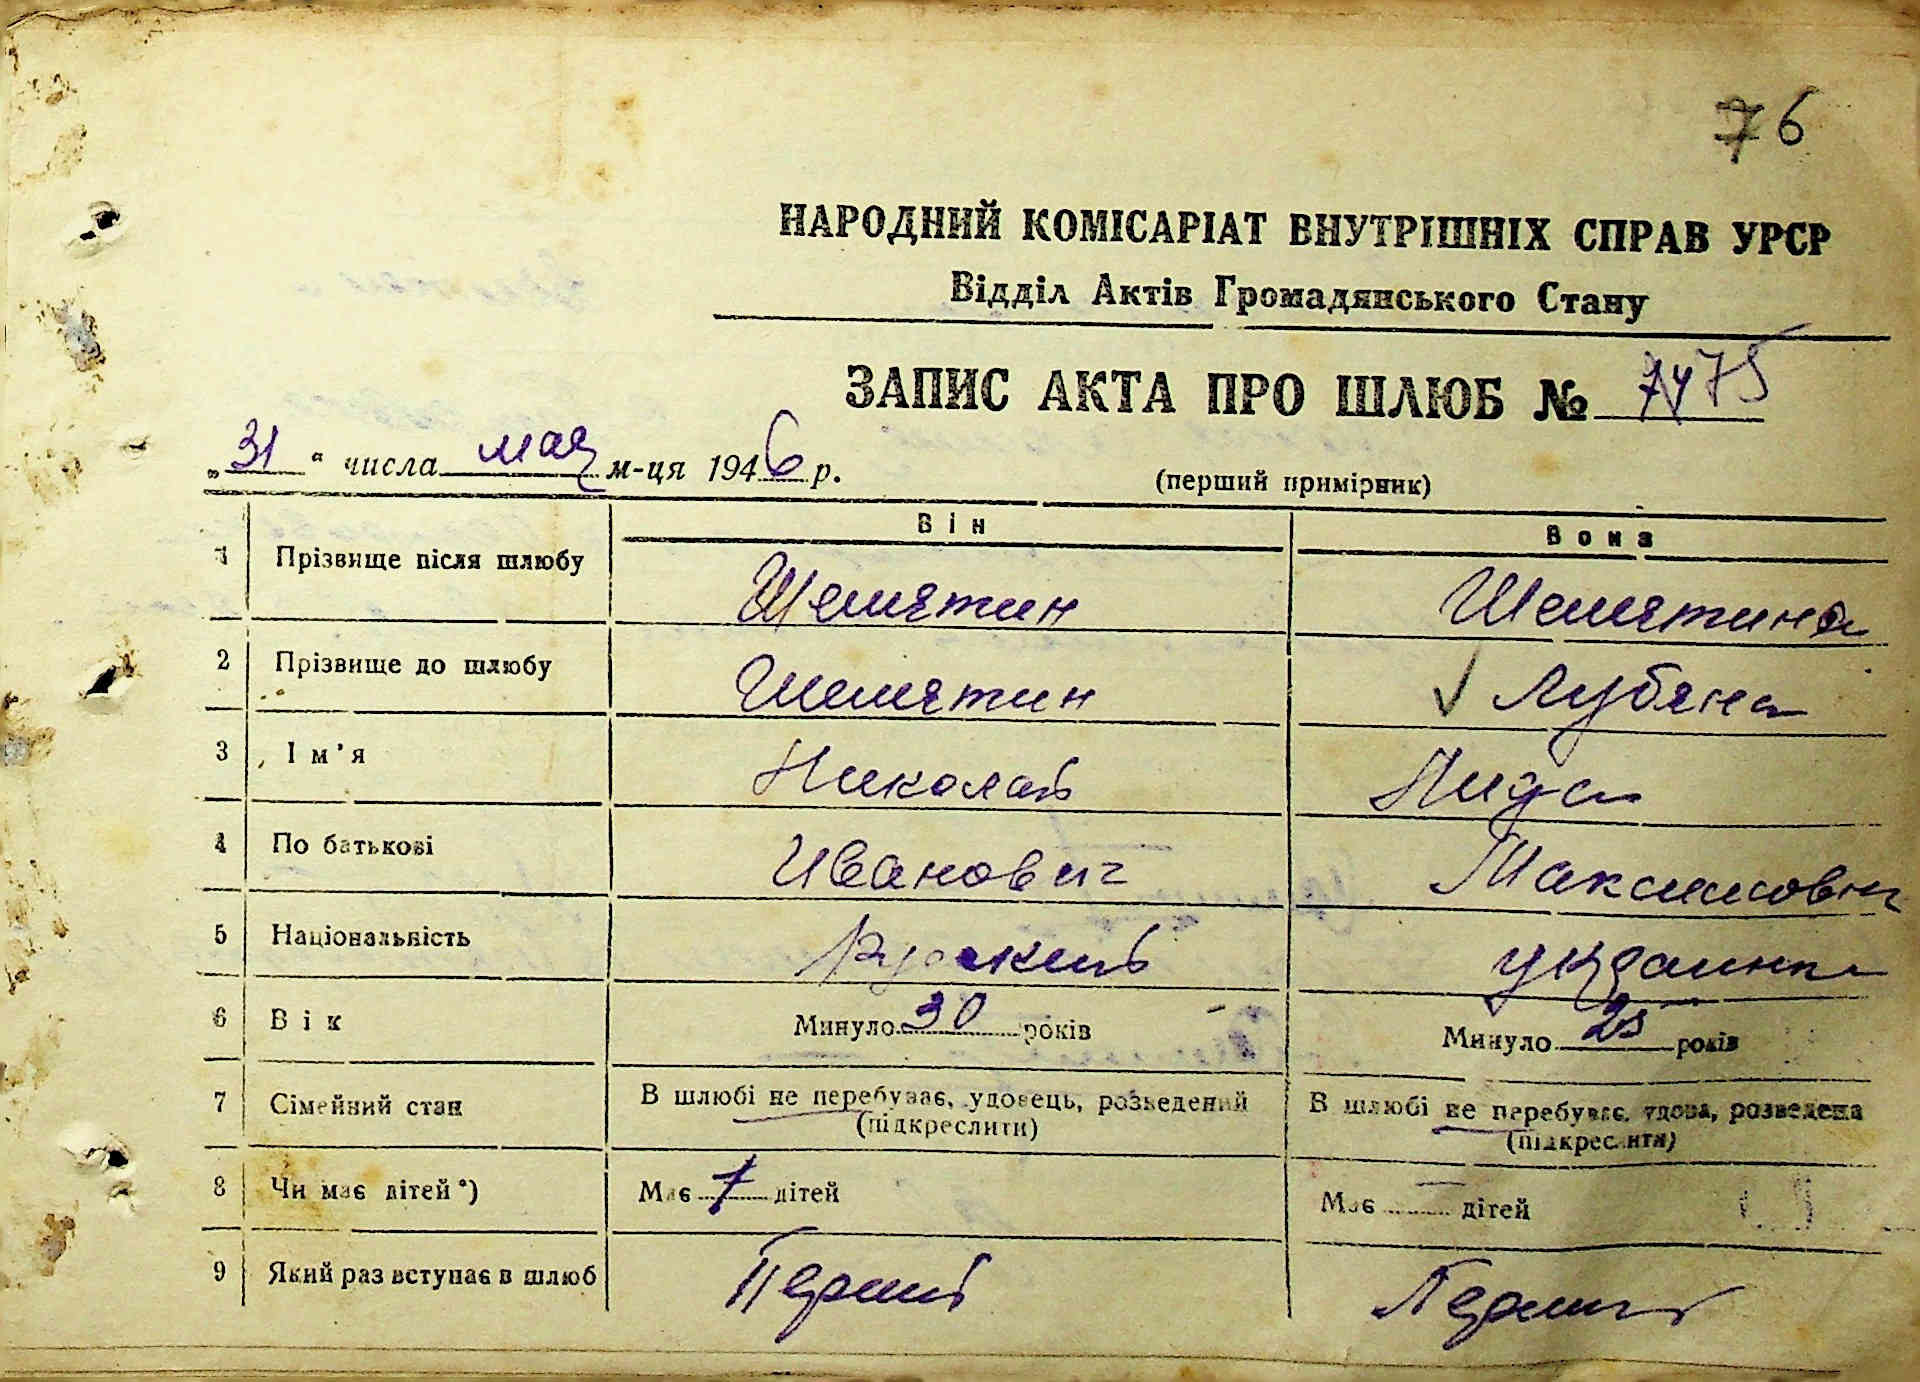 76
НАРОДНИЙ КОМІСАРІАТ ВНУТРІШНІХ СПРАВ УРСР
Відділ Актів Громадянського Стану
ЗАПИС АКТА ПРО ШЛЮБ №
„31“ числа мая м-ця 1946 р.
(перший примірник)
Він Вона
1 Прізвище після шлюбу Шемятин Шемятина
2 Прізвище до шлюбу Шемятин Лубяна
3 Ім'я Николай
4 По батькові Иванович Максимовна
5 Національність Русский украинка
6 Вік Минуло 30 років Минуло 25 років
7 Сімейний стан В шлюбі не перебуває, удовець, розведений (підкреслити) В шлюбі не перебуває, удова, розведена (підкреслити)
8 Чи має дітей*) Має 1 дітей Має — дітей
9 Який раз вступає в шлюб Первый Первый